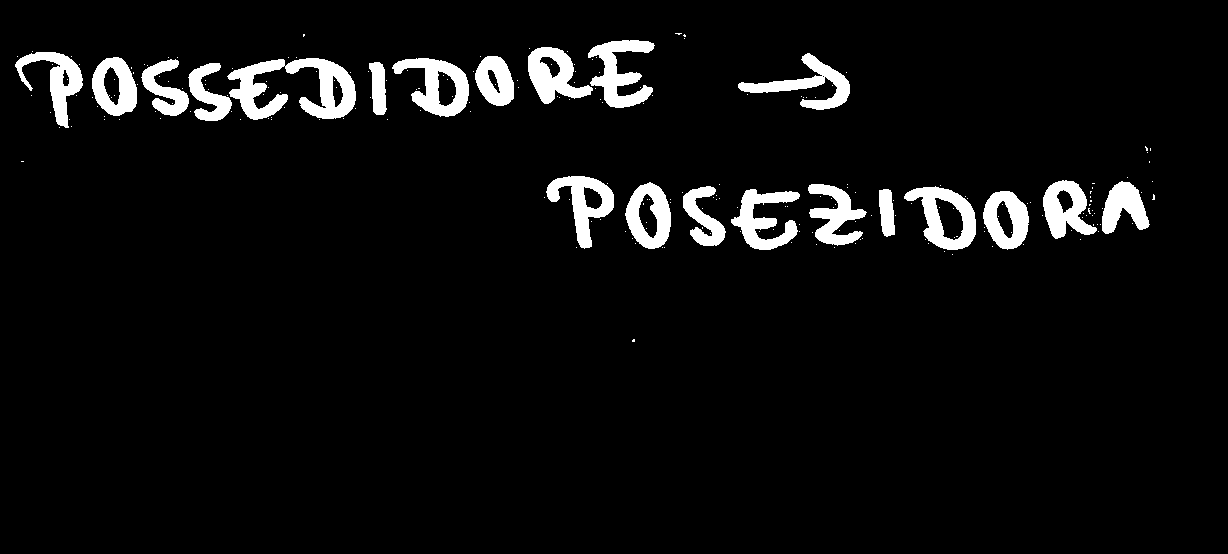 POSSEDIDORE →
POSEZIDORA